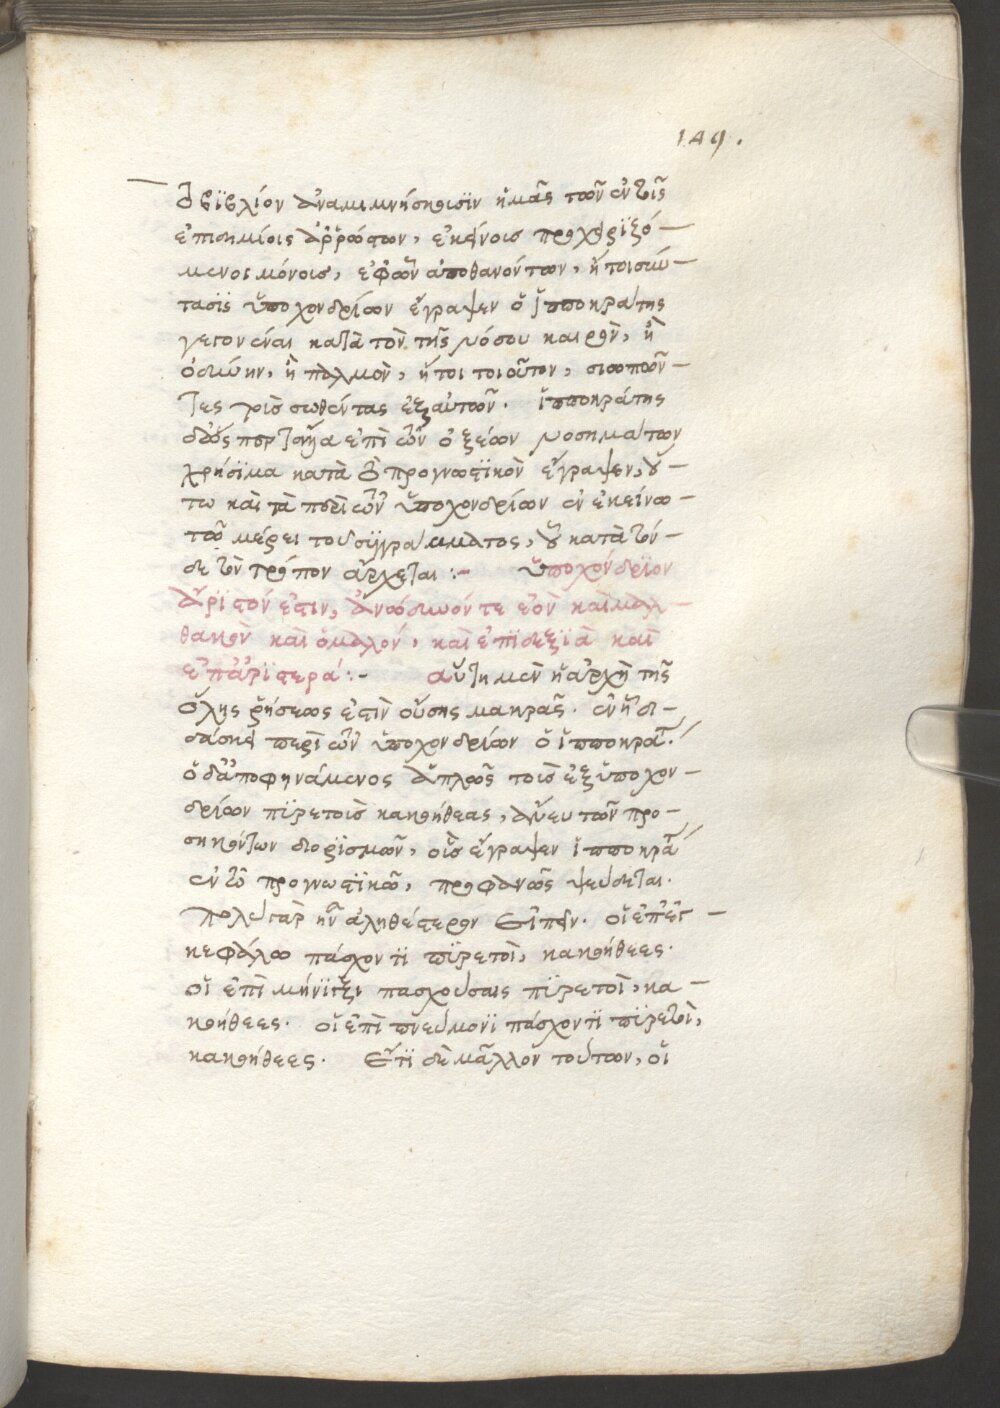 149.
βϊβλίον ἀναμιμνήσκουσϊν ἡμᾶς τῶν ἐν ταῖς
ἐπιδημίαις ἀρρώστων, ἐκείνοις προχειριζό-
μενοι μόνοις, ἐφ' ὧν ἀποθανόντων, ἤτοι διά-
τασϊς ὑποχονδρίων ἔγραψεν ὁ ἱπποκράτης
γεγονέναι κατὰ τὸν τῆς νόσου καιρὸν, ἢ
ὀδύνην, ἢ παλμὸν, ἤτοι τοιοῦτον, σιωπῶν-
τες τοὺς σωθέντας ἐξ αὐτῶν. ἱπποκράτης
δ' ὡς περ τἆλλα ἐπὶ τῶν ὀξέων νοσημάτων
χρήσϊμα κατὰ τὸ προγνωστϊκὸν ἔγραψεν, οὕ-
τω καὶ τὰ περὶ τῶν ὑποχονδρίων ἐν ἐκείνω
τῶ μέρει τοῦ συγγράμματος, οὗ κατὰ τόν-
δε τὸν τρόπον ἄρχεται :- ὑποχόνδρϊον
ἄρϊστόν ἐστιν, ἀνώδυνόν τε ἐὸν καὶ μαλ-
θακὸν καὶ ὁμαλόν, καὶ ἐπϊδεξϊὰ καὶ
ἐπἀρϊστερά :- αὕτη μὲν ἡ ἀρχὴ τῆς
ὅλης ῥήσεως ἐστὶν οὔσης μακρᾶς. ἐν ἧ δι-
δάσκει περὶ τῶν ὑποχονδρίων ὁ ἱπποκρα̃.
ὁ δ' ἀποφηνάμενος ἁπλῶς τοὺς ἐξ ὑποχον-
δρίων πϊρετοὺς κακοήθεας, ἄνευ τῶν προ-
σηκόντων διορϊσμῶν, οὓς ἔγραψεν ἱπποκρα̃
ἐν τῶ προγνωστϊκῶ, προφανῶς ψεύδεται.
πολὺ γὰρ ἦν ἀληθέστερον εἰπεῖν. οἱ ἐπ' ἐγ-
κεφάλω πάσχοντϊ πϊρετοὶ, κακοήθεες.
οἱ ἐπὶ μήνϊγξι πασχούσαις πϊρετοὶ, κα-
κοήθεες. οἱ ἐπὶ πνεύμονϊ πάσχοντϊ πϊρετοὶ,
κακοήθεες. ἔτϊ δὲ μᾶλλον τούτων, οἱ